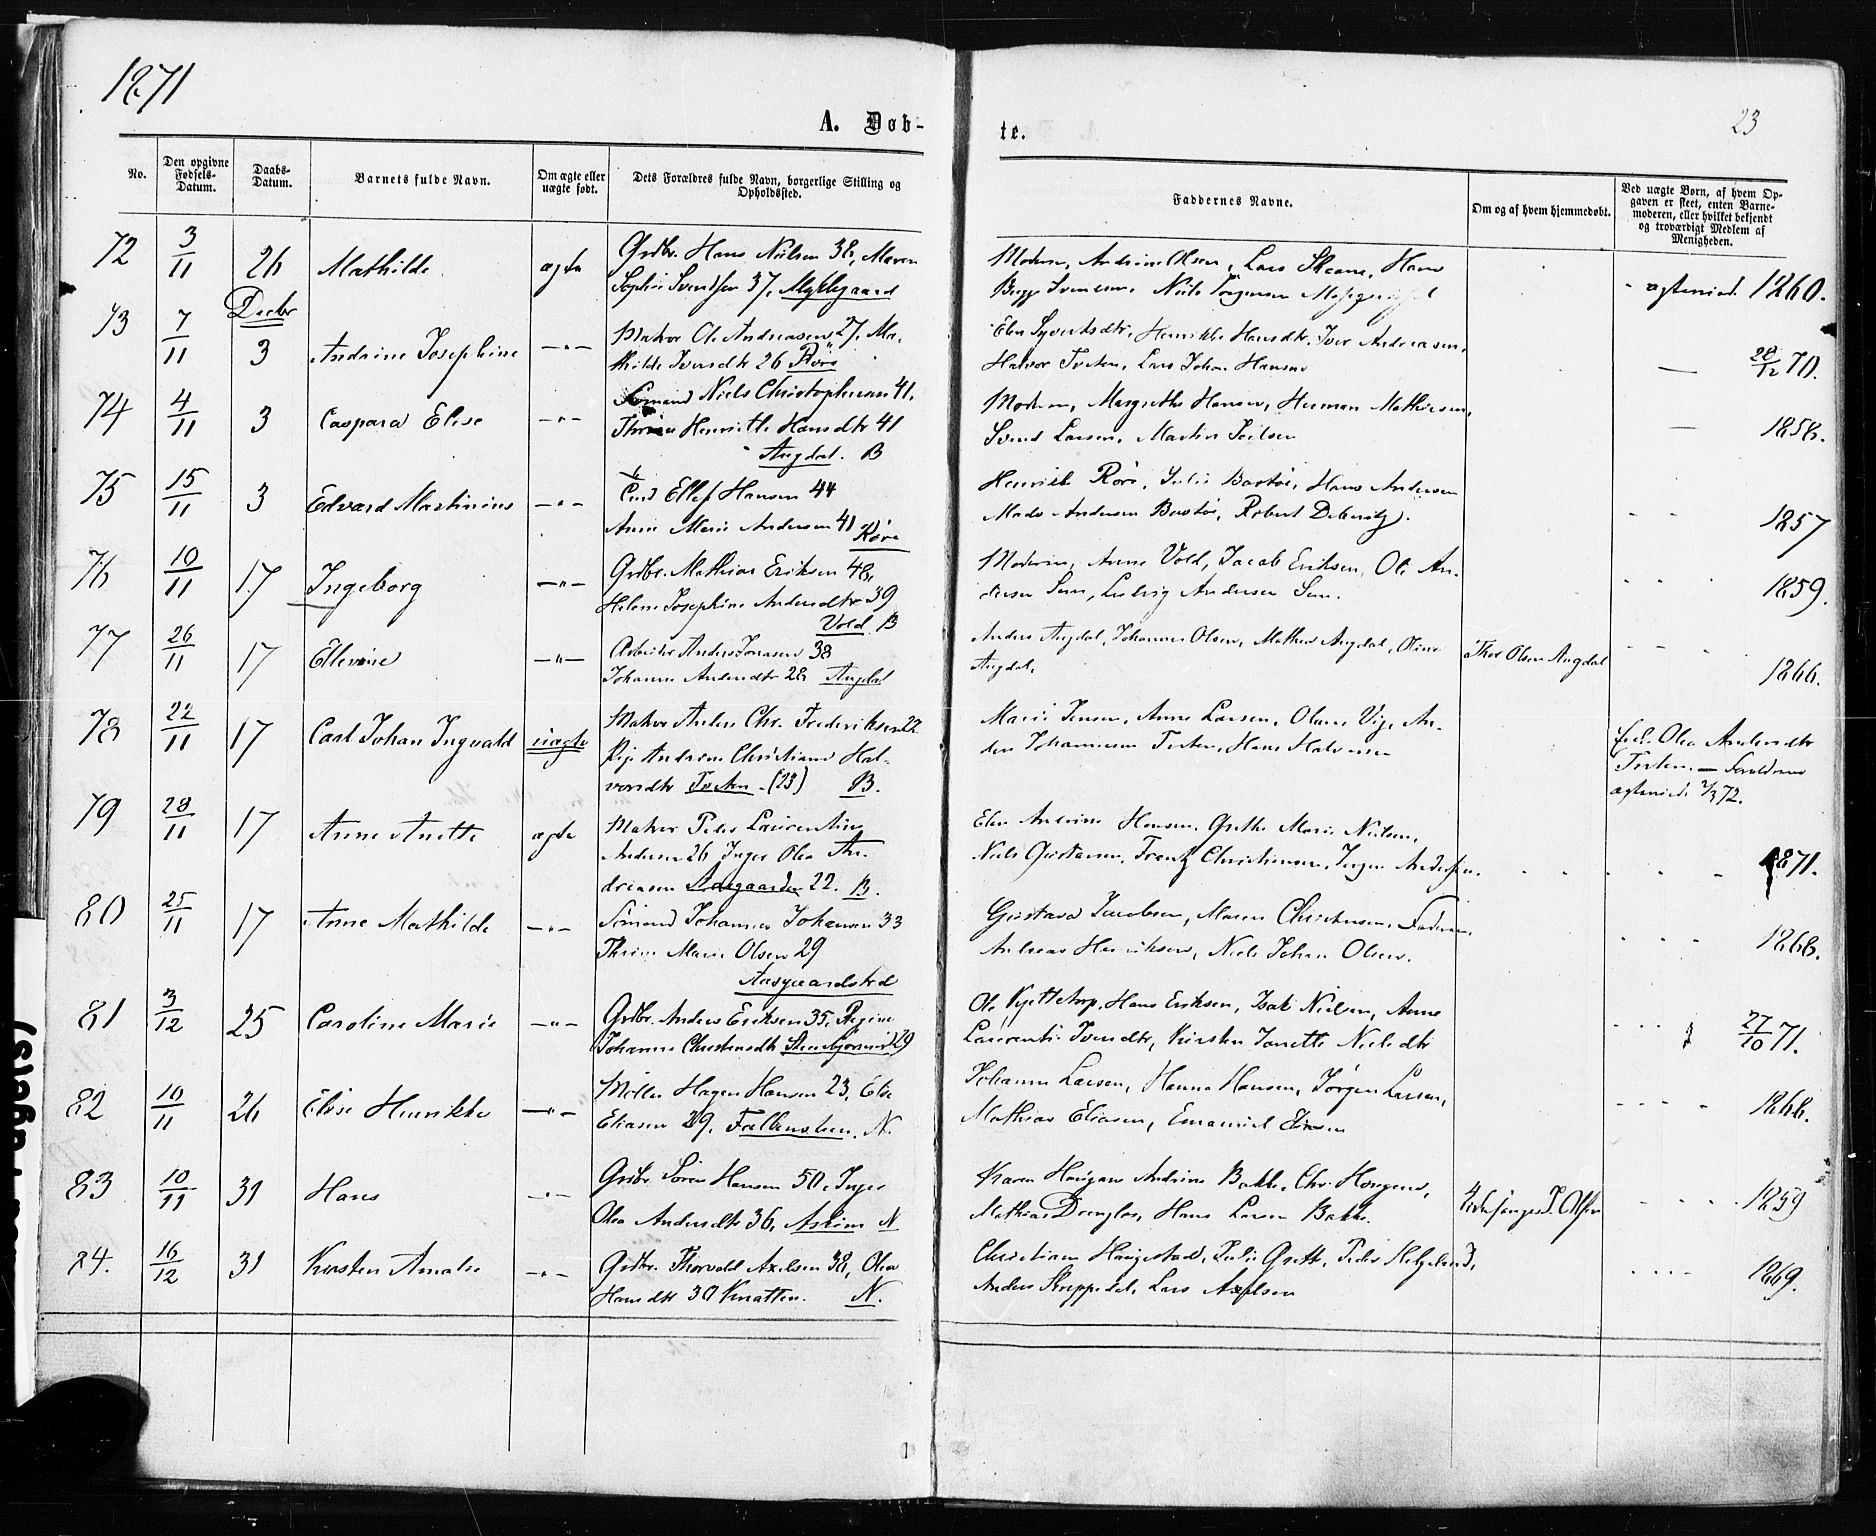 1871
A. Døb-
te.
23
No.
Den opgivne Fødsels-Datum.
Daabs-Datum.
Barnets fulde Navn.
Om ægte eller uægte født.
Dets Forældres fulde Navn, borgerlige Stilling og Opholdssted.
Faddernes Navne.
Om og af hvem hjemmedøbt.
Ved uægte Børn, af hvem Op-
gaven er skeet, enten Barne-
moderen, eller hvilket bekjendt
og troværdigt Medlem af
Menigheden.
72 3/11 26 Mathilde ægte Grdbr. Hans Nielsen 38, Maren
Sophie Svendsen 37, Myklegaard
Moderen, Andrine Olsen, Lars Skeane, Hans
Svensen, Niels
ægteviet 1860.
Decbr
73 7/11 3 Andrine Josephine -"- Matros Ole Andreasen 27, Ma-
thilde Iversdtr 26 Røre
Elen Syvertsdtr, Henrikke Hansdtr, Iver Andreasen,
Halvor Tveten, Lars Johan Hansen
— 28/12 70.
74 4/11 3 Caspara Elise -"- Sømand Niels Christophersen 41,
Thrine Henriette Hansdtr 41
Augdal. B
Moderen, Margrethe Hansen, Herman Mathiesen,
Svend Larsen, Martin Nielsen
— 1858.
75 15/11 3 Edvard Martinius -"- Ellef Hansen 44
Anne Marie Andersen 41 Røre
Henrik Røre, Julie Bastøe, Hans Andersen
Mads Andersen Bastøe, Robert Deberitz.
" " 1857
76 10/11 17 Ingeborg -"- Grdbr. Mathias Eriksen 48,
Helene Josephine Andersdtr 39
Vold B
Moderen, Anne Vold, Jacob Eriksen, Ole An-
dersen Sem, Ludvig Andersen Sem.
" " 1859.
77 26/11 17 Ellevine -"- Arbeider Anders Jonasen 38
Johanne Andersdtr 28 Augdal
Anders Augdal, Johannes Olsen, Mathea Augdal, Oline
Augdal.
Thor Olsen Augdal
1866.
78 22/11 17 Carl Johan Ingvald uægte Matros Anders Chr. Frederiksen 22
Pige Andrine Christiane Hal-
vorsdtr Tveten (23) B.
Marie Jensen, Anne Larsen, Olava Vig, An-
ders Johannesen Tveten, Hans Halvorsen
Olea Andersdtr
Tveten. — Forældrene
ægteviede 2/3 72.
79 28/11 17 Anne Anette ægte Matros Peder Laurentius
Andersen 26 Inger Olea An-
dreasen Aasgaarden 22. B.
Elen Andrine Hansen, Grethe Marie Nielsen,
Niels Gustavsen, Frantz Christiansen, Jørgen Andersen.
1871.
80 25/11 17 Anne Mathilde -"- Sømand Johannes Johansen 33
Thrine Marie Olsen 29
Aasgaardstrd
Gustava Jacobsen, Maren Christensen, Faderen,
Andreas Henriksen, Niels Johan Olsen.
1868.
81 3/12 25 Caroline Marie -"- Grdbr. Anders Eriksen 35, Regine
Johanne Christensdtr 29
Ole Gjettetorp, Hans Eriksen, Isak Nielsen, Anne
Laurentie Iversdtr, Kirsten Janette Nielsdtr
27/10 71.
82 10/11 26 Elise Henrikke -"- Møller Hagen Hansen 23, Else
Eliasen 29, Falkensten. N.
Johanne Larsen, Hanna Hansen, Jørgen Larsen,
Mathias Eliasen, Emanuel
1868.
83 10/11 31 Hans -"- Grdbr Søren Hansen 50, Inger
Olea Andersdtr 36, Askim N
Karen Haugan Andrine Bakke, Chr. Haugan,
Mathias, Hans Larsen Bakke.
Kirkesanger J. Olsen
1859
84. 16/12 31 Kirsten Amalie -"- Grdbr. Thorvald Axelsen 38, Olea
Hansdtr 30 Knatten. N.
Christiane Haugestad, Julie Grette, Peder Helgeland,
Anders Skreppestad, Lars Axelsen
1869.